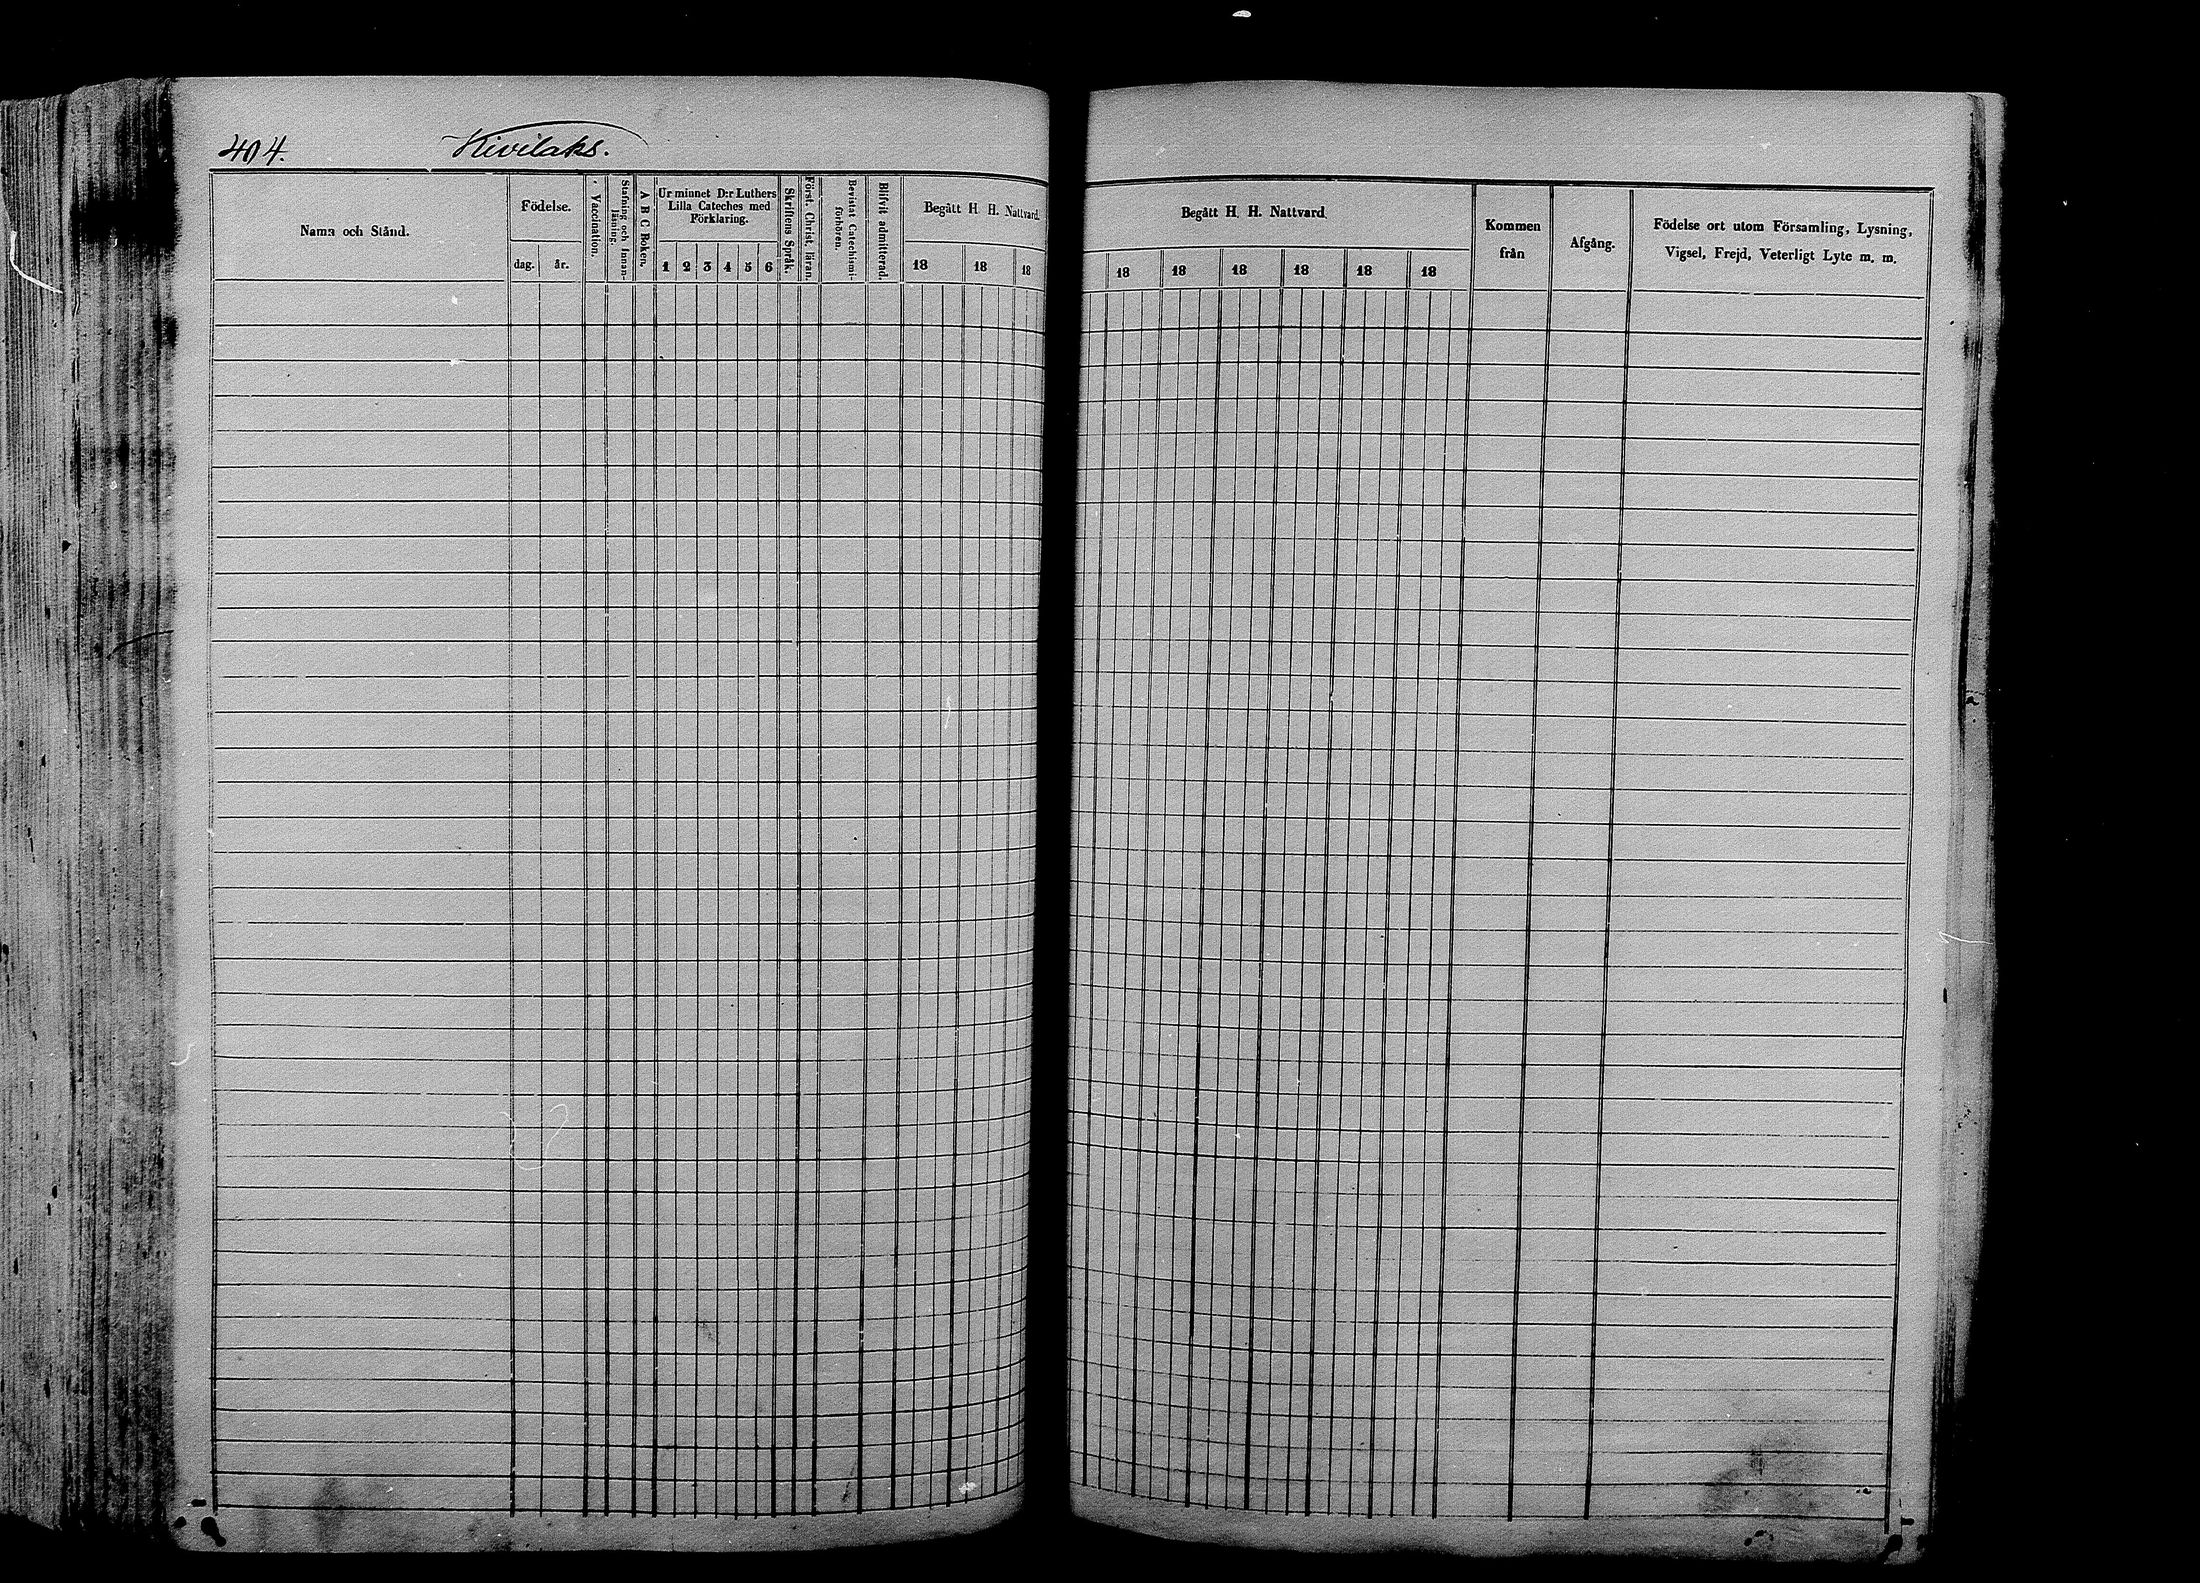 404. Kivilaks.
Namn och Stånd.
Födelse.
dag. år.
Vaccination.
Stafning och Innan-
läsning.
A B C Boken.
Ur minnet D:r Luthers
Lilla Cateches med
Förklaring.
1 2 3 4 5 6
Skriftens Språk.
Först. Christ. läran.
Bevistat Catechismi-
förhören.
Blifvit admitterad.
Begått H. H. Nattvard.
18 18 18
Begått H. H. Nattvard.
18 18 18 18 18 18
Kommen
från
Afgång.
Födelse ort utom Församling, Lysning,
Vigsel, Frejd, Veterligt Lyte m. m.